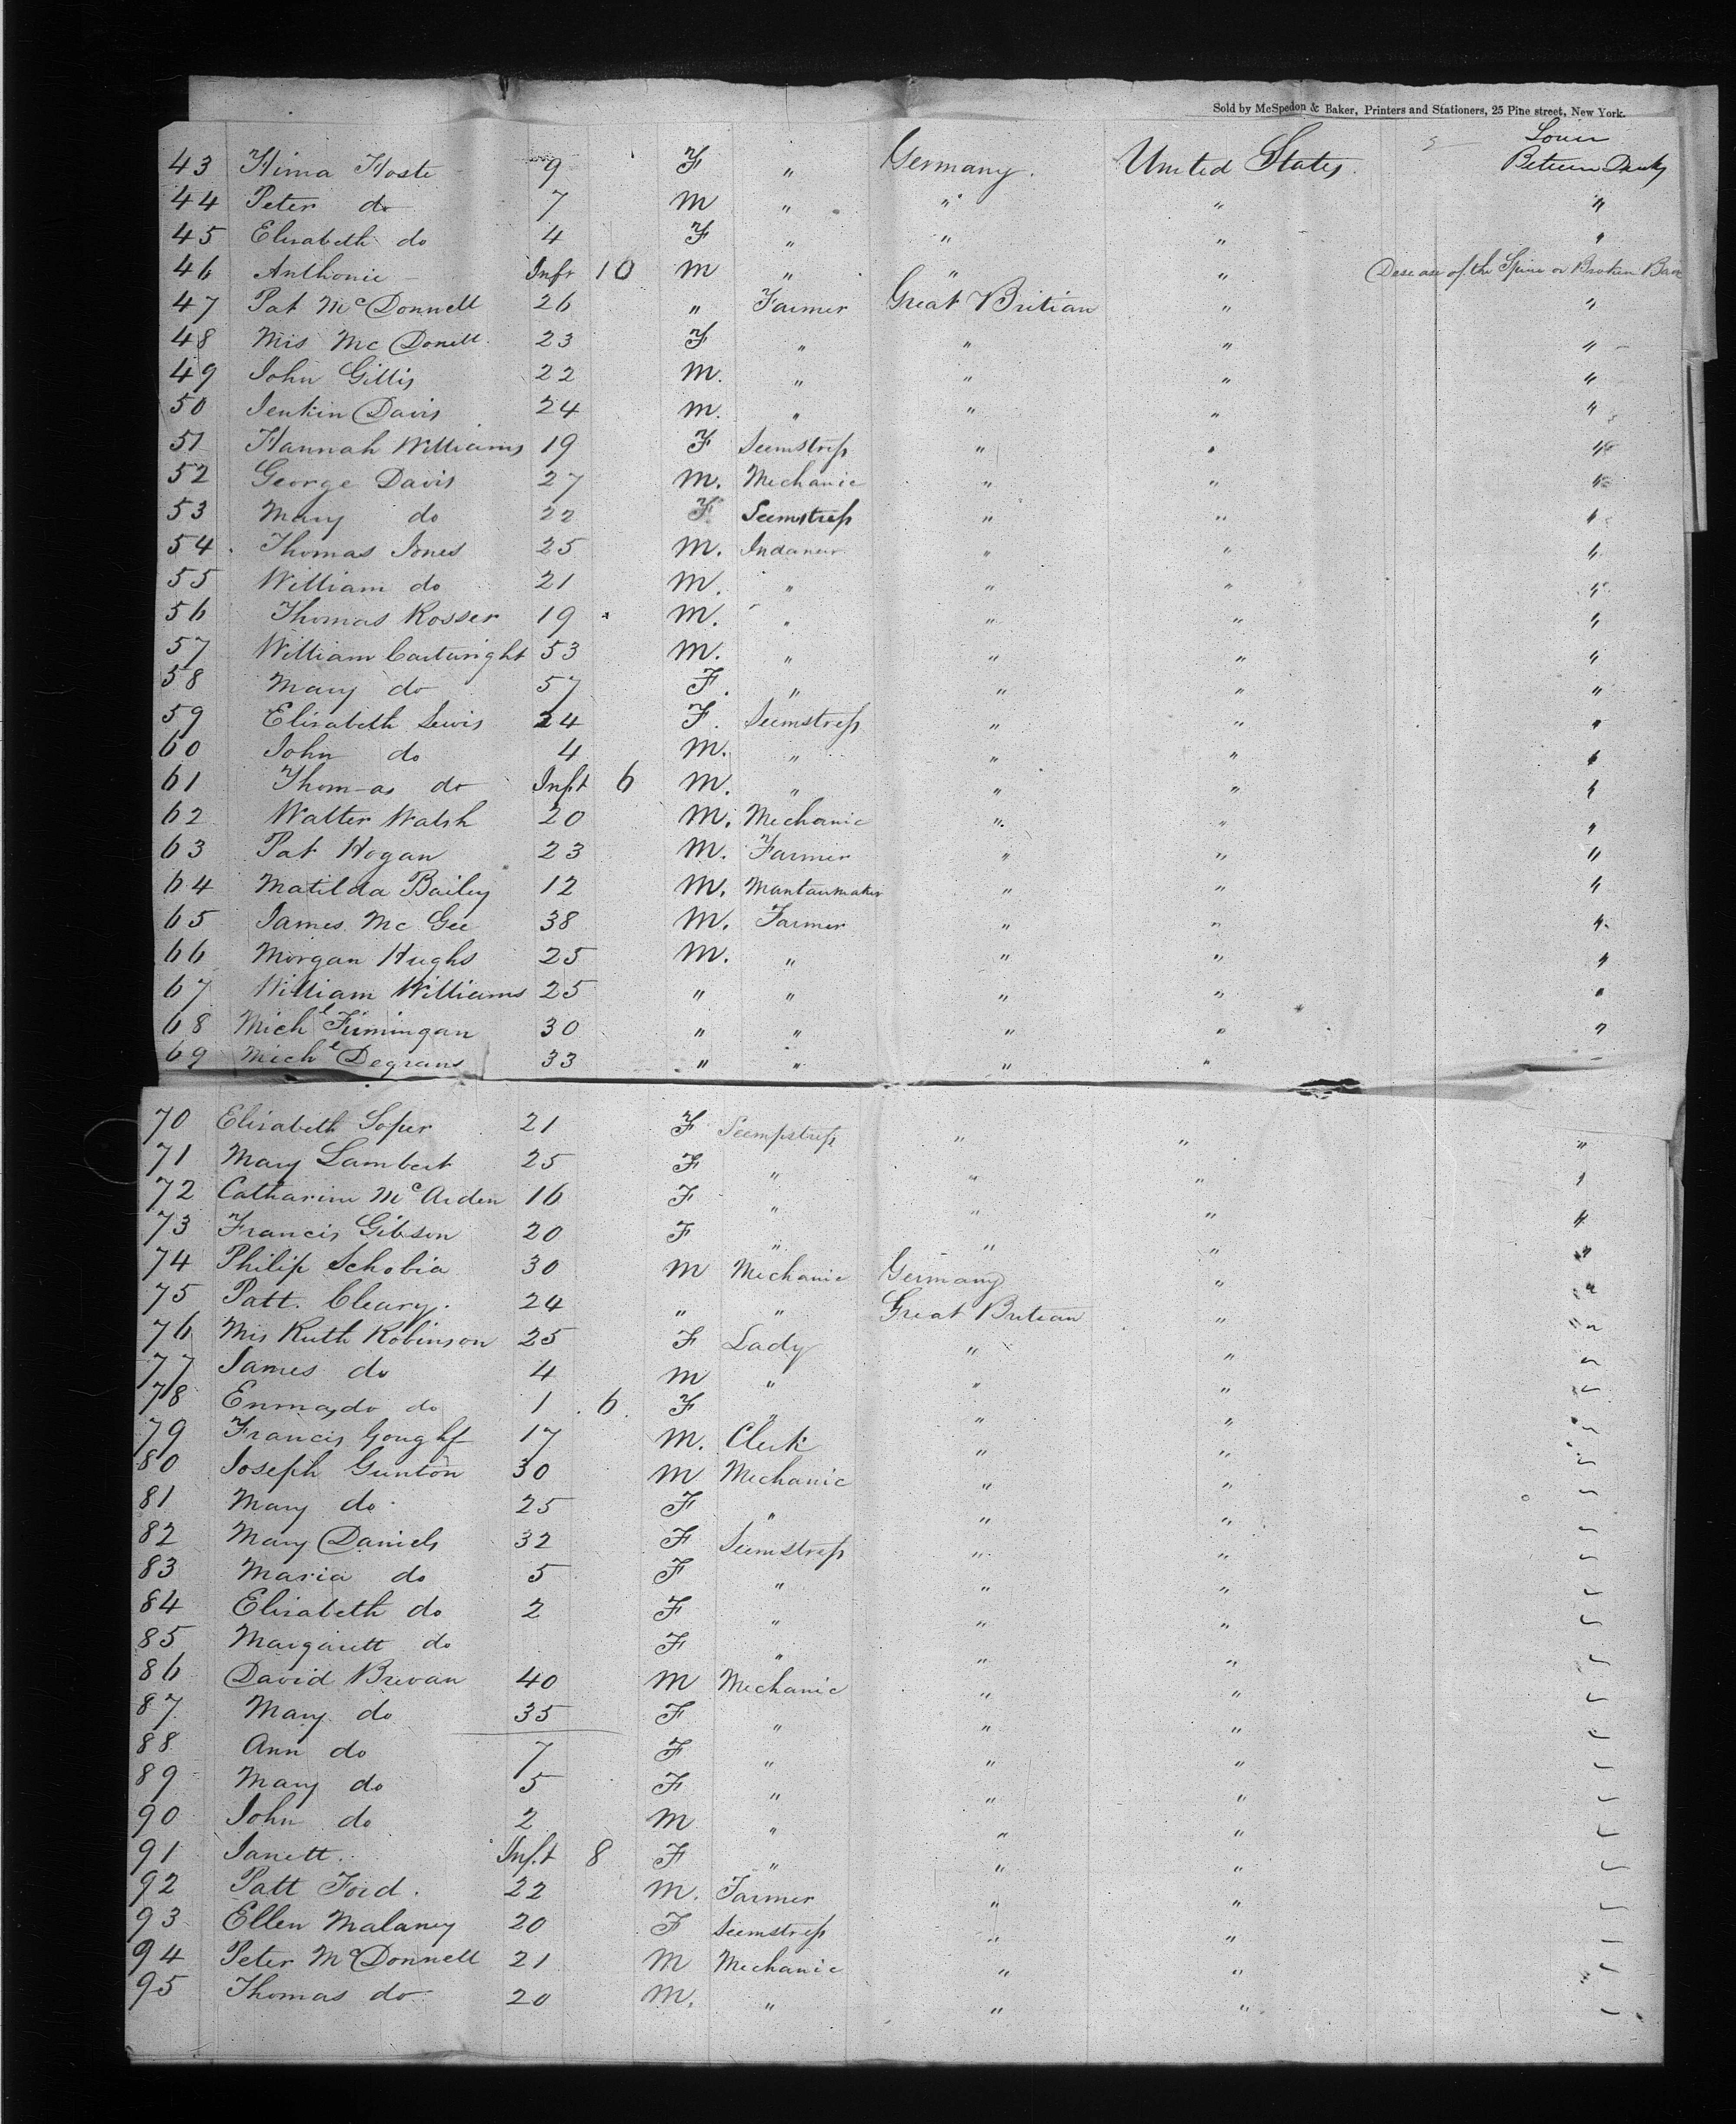 Sold by McSpedon & Baker, Printers and Stationers, 25 Pine street, New York.
Lower
43 Hima Hoste 9 F " Germany. United States. Between Decks
44 Peter do 7 M " " " "
45 Elisabeth do 4 F " " " "
46 Anthonie Inft 10 M " " " Disease of the Spine or Broken Back
47 Pat McDonnell 26 " Farmer Great Britian " "
48 Mis Mc Donell 23 F " " " "
49 John Gillis 22 M. " " " "
50 Jenkin Davis 24 M. " " " "
51 Hannah Williams 19 F Seemstress " " "
52 George Davis 27 M. Mechanic " " "
53 Mary do 22 F Seemstress " " "
54 Thomas Jones 25 M. " " "
55 William do 21 M. " " " "
56 Thomas Rosser 19 M. " " " "
57 William Cartwright 53 M. " " " "
58 Mary do 57 F. " " " "
59 Elisabeth Lewis 24 F. Seemstress " " "
60 John do 4 M. " " " "
61 Thom-as do Inft 6 M. " " " "
62 Walter Walsh 20 M. Mechanic " " "
63 Pat Hogan 23 M. Farmer " " "
64 Matilda Bailey 12 M. Mantaumaker " " "
65 James Mc Gee 38 M. Farmer " " "
66 Morgan Hughs 25 M. " " " "
67 William Williams 25 " " " " "
68 Michl Firmingan 30 " " " " "
69 Michl Degrans 33 " " " "
70 Elisabeth Soper 21 F Seempstress " " "
71 Mary Lambert 25 F " " " "
72 Catharine McArden 16 F " " " "
73 Francis Gibson 20 F " " " "
74 Philip Schobia 30 M Mechanic Germany " "
75 Patt. Cleary. 24 " " Great Britian " "
76 Mis Ruth Robinson 25 F Lady " " "
77 James do 4 M " " " "
78 Emma do do 1 6 F " " " "
79 Francis Gough 17 M. Clerk " " "
80 Joseph Gunton 30 M Mechanic " " "
81 Mary do 25 F " " " "
82 Mary Daniels 32 F Seemstress " " "
83 Maria do 5 F " " " "
84 Elisabeth do 2 F " " " "
85 Margarett do F " " " "
86 David Brevan 40 M Mechanic " " "
87 Mary do 35 F " " " "
88 Ann do 7 F " " " "
89 Mary do 5 F " " " "
90 John do 2 M " " " "
91 Janett. Inft 8 F " " " "
92 Patt Ford. 22 M. Farmer " " "
93 Ellen Malaney 20 F Seemstress " " "
94 Peter McDonnell 21 M Mechanic " " "
95 Thomas do 20 M. " " " "